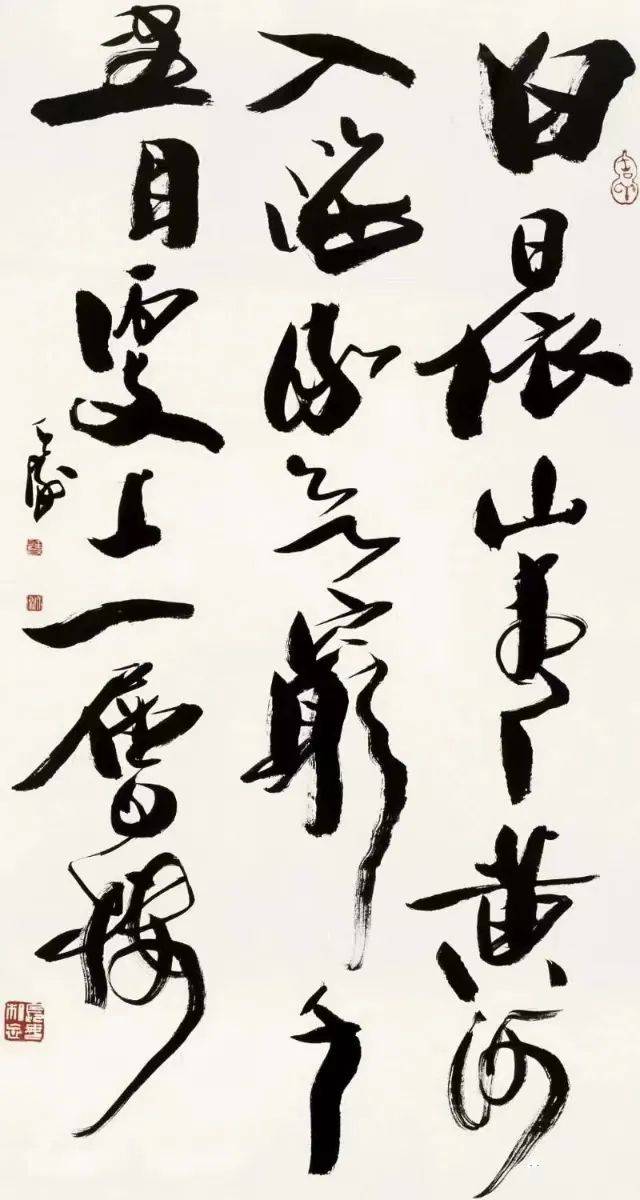 白日依山盡黄河
入海流欲窮千
里目更上一層樓